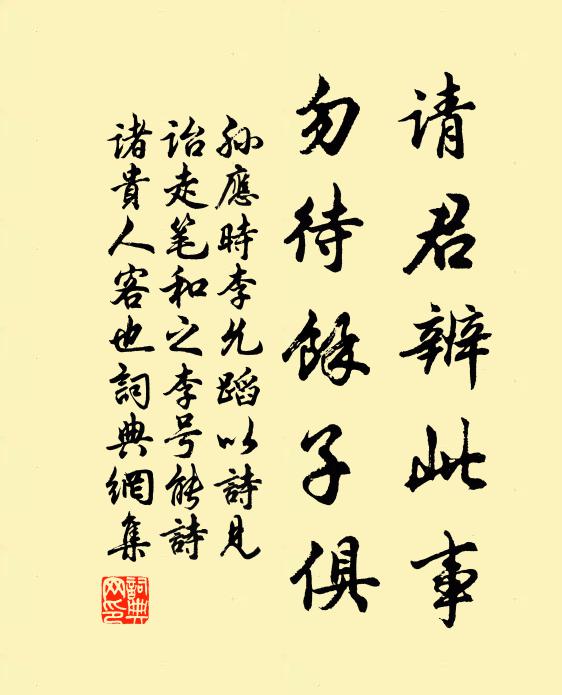 请君辨此事
勿待餘子俱
孫應時李允蹈以詩見
詒走笔和之李号能詩
諸貴人客也詞典網集
詞典网印